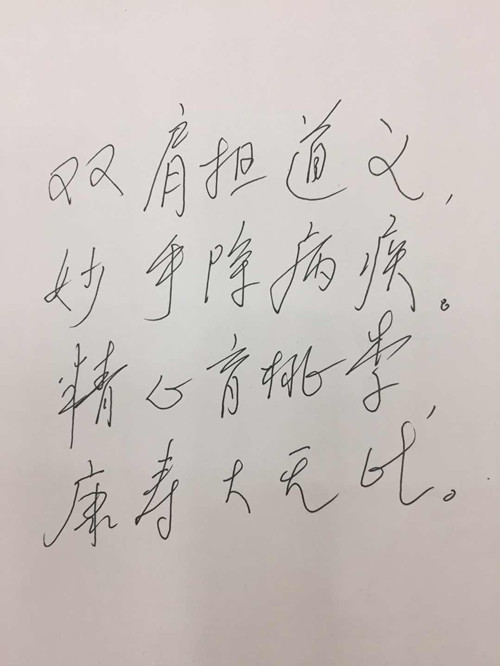 双肩担道义,
妙手除病疾。
精心育桃李,
康寿大无比。